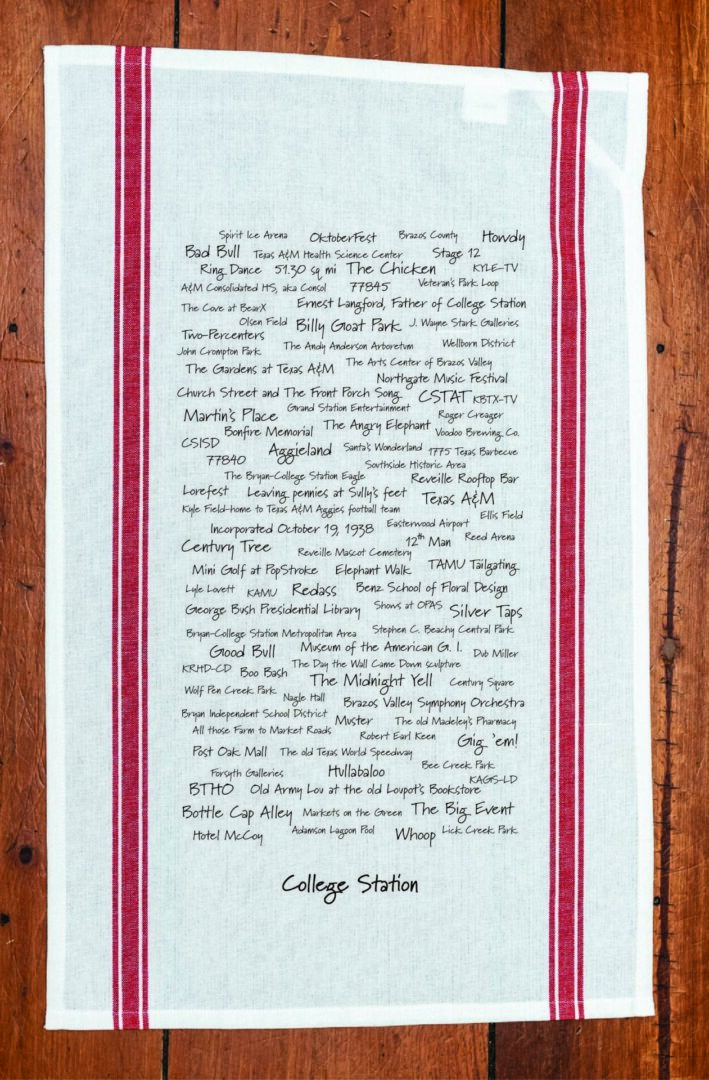 Spirit Ice Arena OktoberFest Brazos County Howdy
Bad Bull Texas A&M Health Science Center Stage 12
Ring Dance 51.30 sq mi The Chicken KYLE-TV
A&M Consolidated HS, aka Consol 77845 Veteran's Park Loop
The Cove at BearX Ernest Langford, Father of College Station
Olsen Field Billy Goat Park J. Wayne Stark Galleries
Two-Percenters The Andy Anderson Arboretum Wellborn District
John Crompton Park The Arts Center of Brazos Valley
The Gardens at Texas A&M
Northgate Music Festival
Church Street and The Front Porch Song CSTAT KBTX-TV
Martin's Place Grand Station Entertainment Roger Creager
Bonfire Memorial The Angry Elephant Voodoo Brewing Co.
CSISD Aggieland Santa's Wonderland 1775 Texas Barbecue
77840 Southside Historic Area
The Bryan-College Station Eagle Reveille Rooftop Bar
Lorefest Leaving pennies at Sully's feet Texas A&M
Kyle Field-home to Texas A&M Aggies football team Ellis Field
Incorporated October 19, 1938 Easterwood Airport
Century Tree Reveille Mascot Cemetery 12th Man Reed Arena
Mini Golf at PopStroke Elephant Walk TAMU Tailgating
Lyle Lovett KAMU Redass Benz School of Floral Design
George Bush Presidential Library Shows at OPAS Silver Taps
Bryan-College Station Metropolitan Area Stephen C. Beachy Central Park
Good Bull Museum of the American G. I. Dub Miller
KRHD-CD Boo Bash The Day the Wall Came Down sculpture
The Midnight Yell Century Square
Wolf Pen Creek Park Nagle Hall Brazos Valley Symphony Orchestra
Bryan Independent School District Muster The old Madeley's Pharmacy
All those Farm to Market Roads Robert Earl Keen Gig 'em!
Post Oak Mall The old Texas World Speedway
Forsyth Galleries Hullabaloo Bee Creek Park
KAGS-LD
BTHO Old Army Lou at the old Loupot's Bookstore
Bottle Cap Alley Markets on the Green The Big Event
Hotel McCoy Adamson Lagoon Pool Whoop Lick Creek Park
College Station